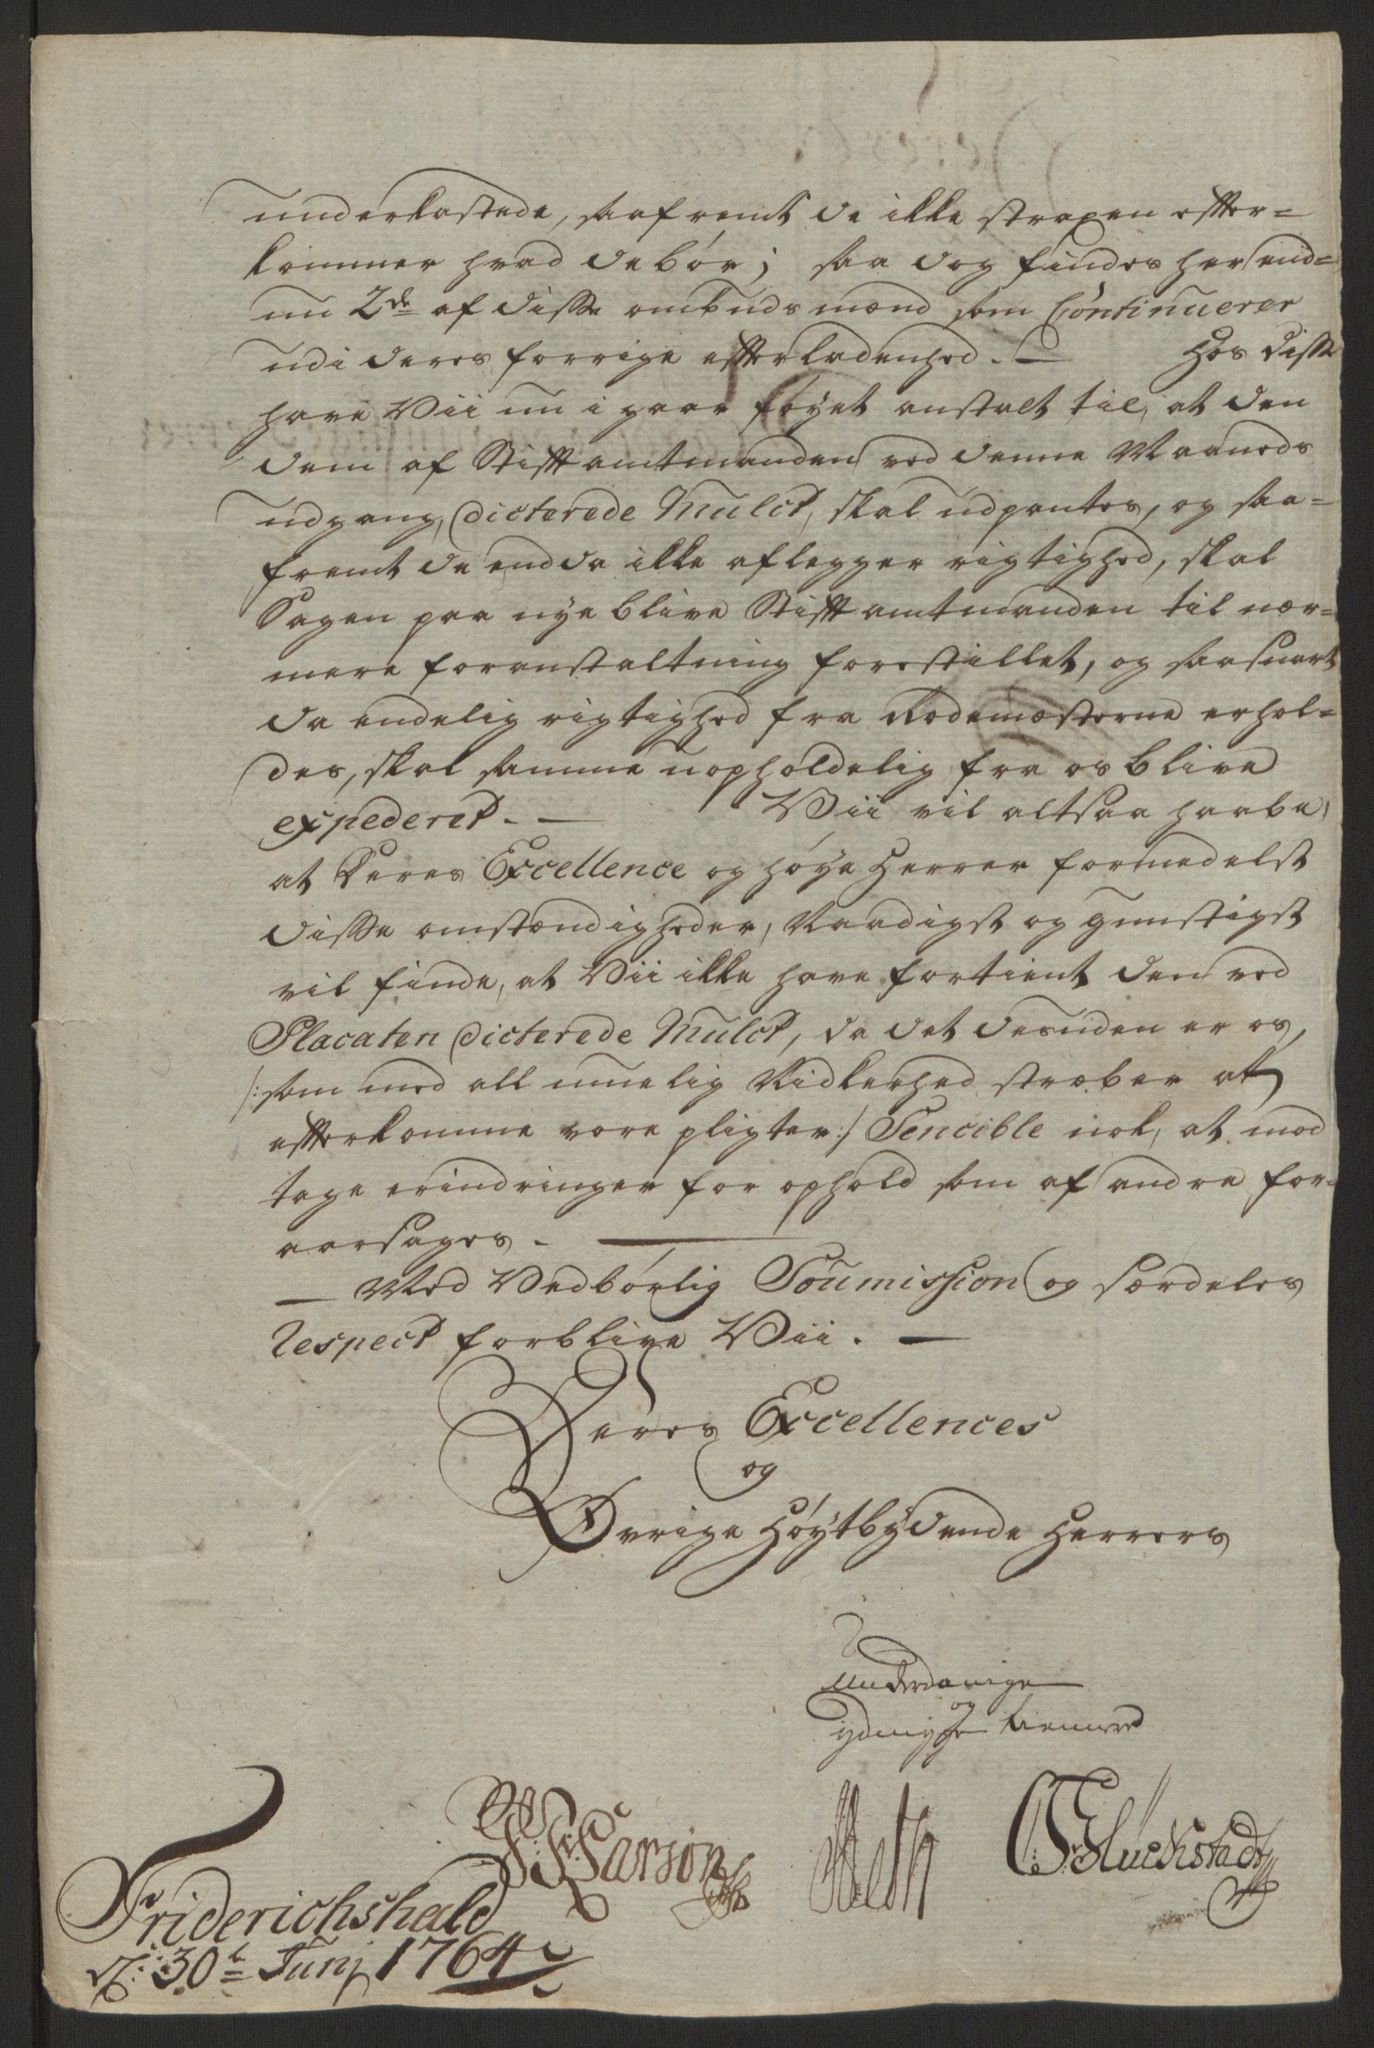 underkastede, saafremt de ikke straxen effter=
kommer hvad de bör; saa dog findes her end=
nu 2de af disse ombudsmænd som Continuerer
udi deres forrige effterladenhed. — Hos disse
have Vii nu i gaar föyet anstalt til, at den
dem af Stifftamtmanden ved denne Maaneds
udgang, dicterede Mulct, skal udpantes, og saa=
fremt de endda ikke aflegger rigtighed, skal
Sagen paa nye blive Stifftamtmanden til nær=
mere foranstaltning forestillet, og saasnart
da endelig rigtighed fra Rodemesterne erhol=
des, skal samme uopholdelig fra os blive
expederet. — Vii vil altsaa haabe,
at Deres Excellence og høye Herrer formedelst
disse omstændigheder, Naadigst og gunstigst
vil finde, at Vii ikke have fortient den ved
Placaten dicterede Mulct, da det desuden er os,
/: som med all muelig Nidkerhed stræber at
effterkomme vore pligter :/ Sencible nok, at mod
tage erindringer for ophold som af andre for=
aarsages. —
— Med Vedbörlig Soumission og særdeles
Respect forblive Vii. —
Deres Excellences
og
Øvrige Høytbydende Herrers
Underdanige
og
ydmyge tienere
Carson
Gluckstadt
Friderichshald
d: 30t Junj 1764